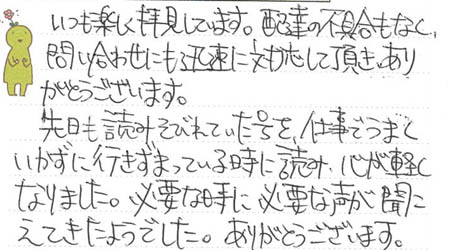 いつも楽しく拝見しています。配達の不具合もなく、
問い合わせにも迅速に対応して頂き、あり
がとうございます。
先日も読みそびれていた号を、仕事でうまく
いかずに行きずまっている時に読み、心が軽く
なりました。必要な時に必要な声が聞こ
えてきたようでした。ありがとうございます。